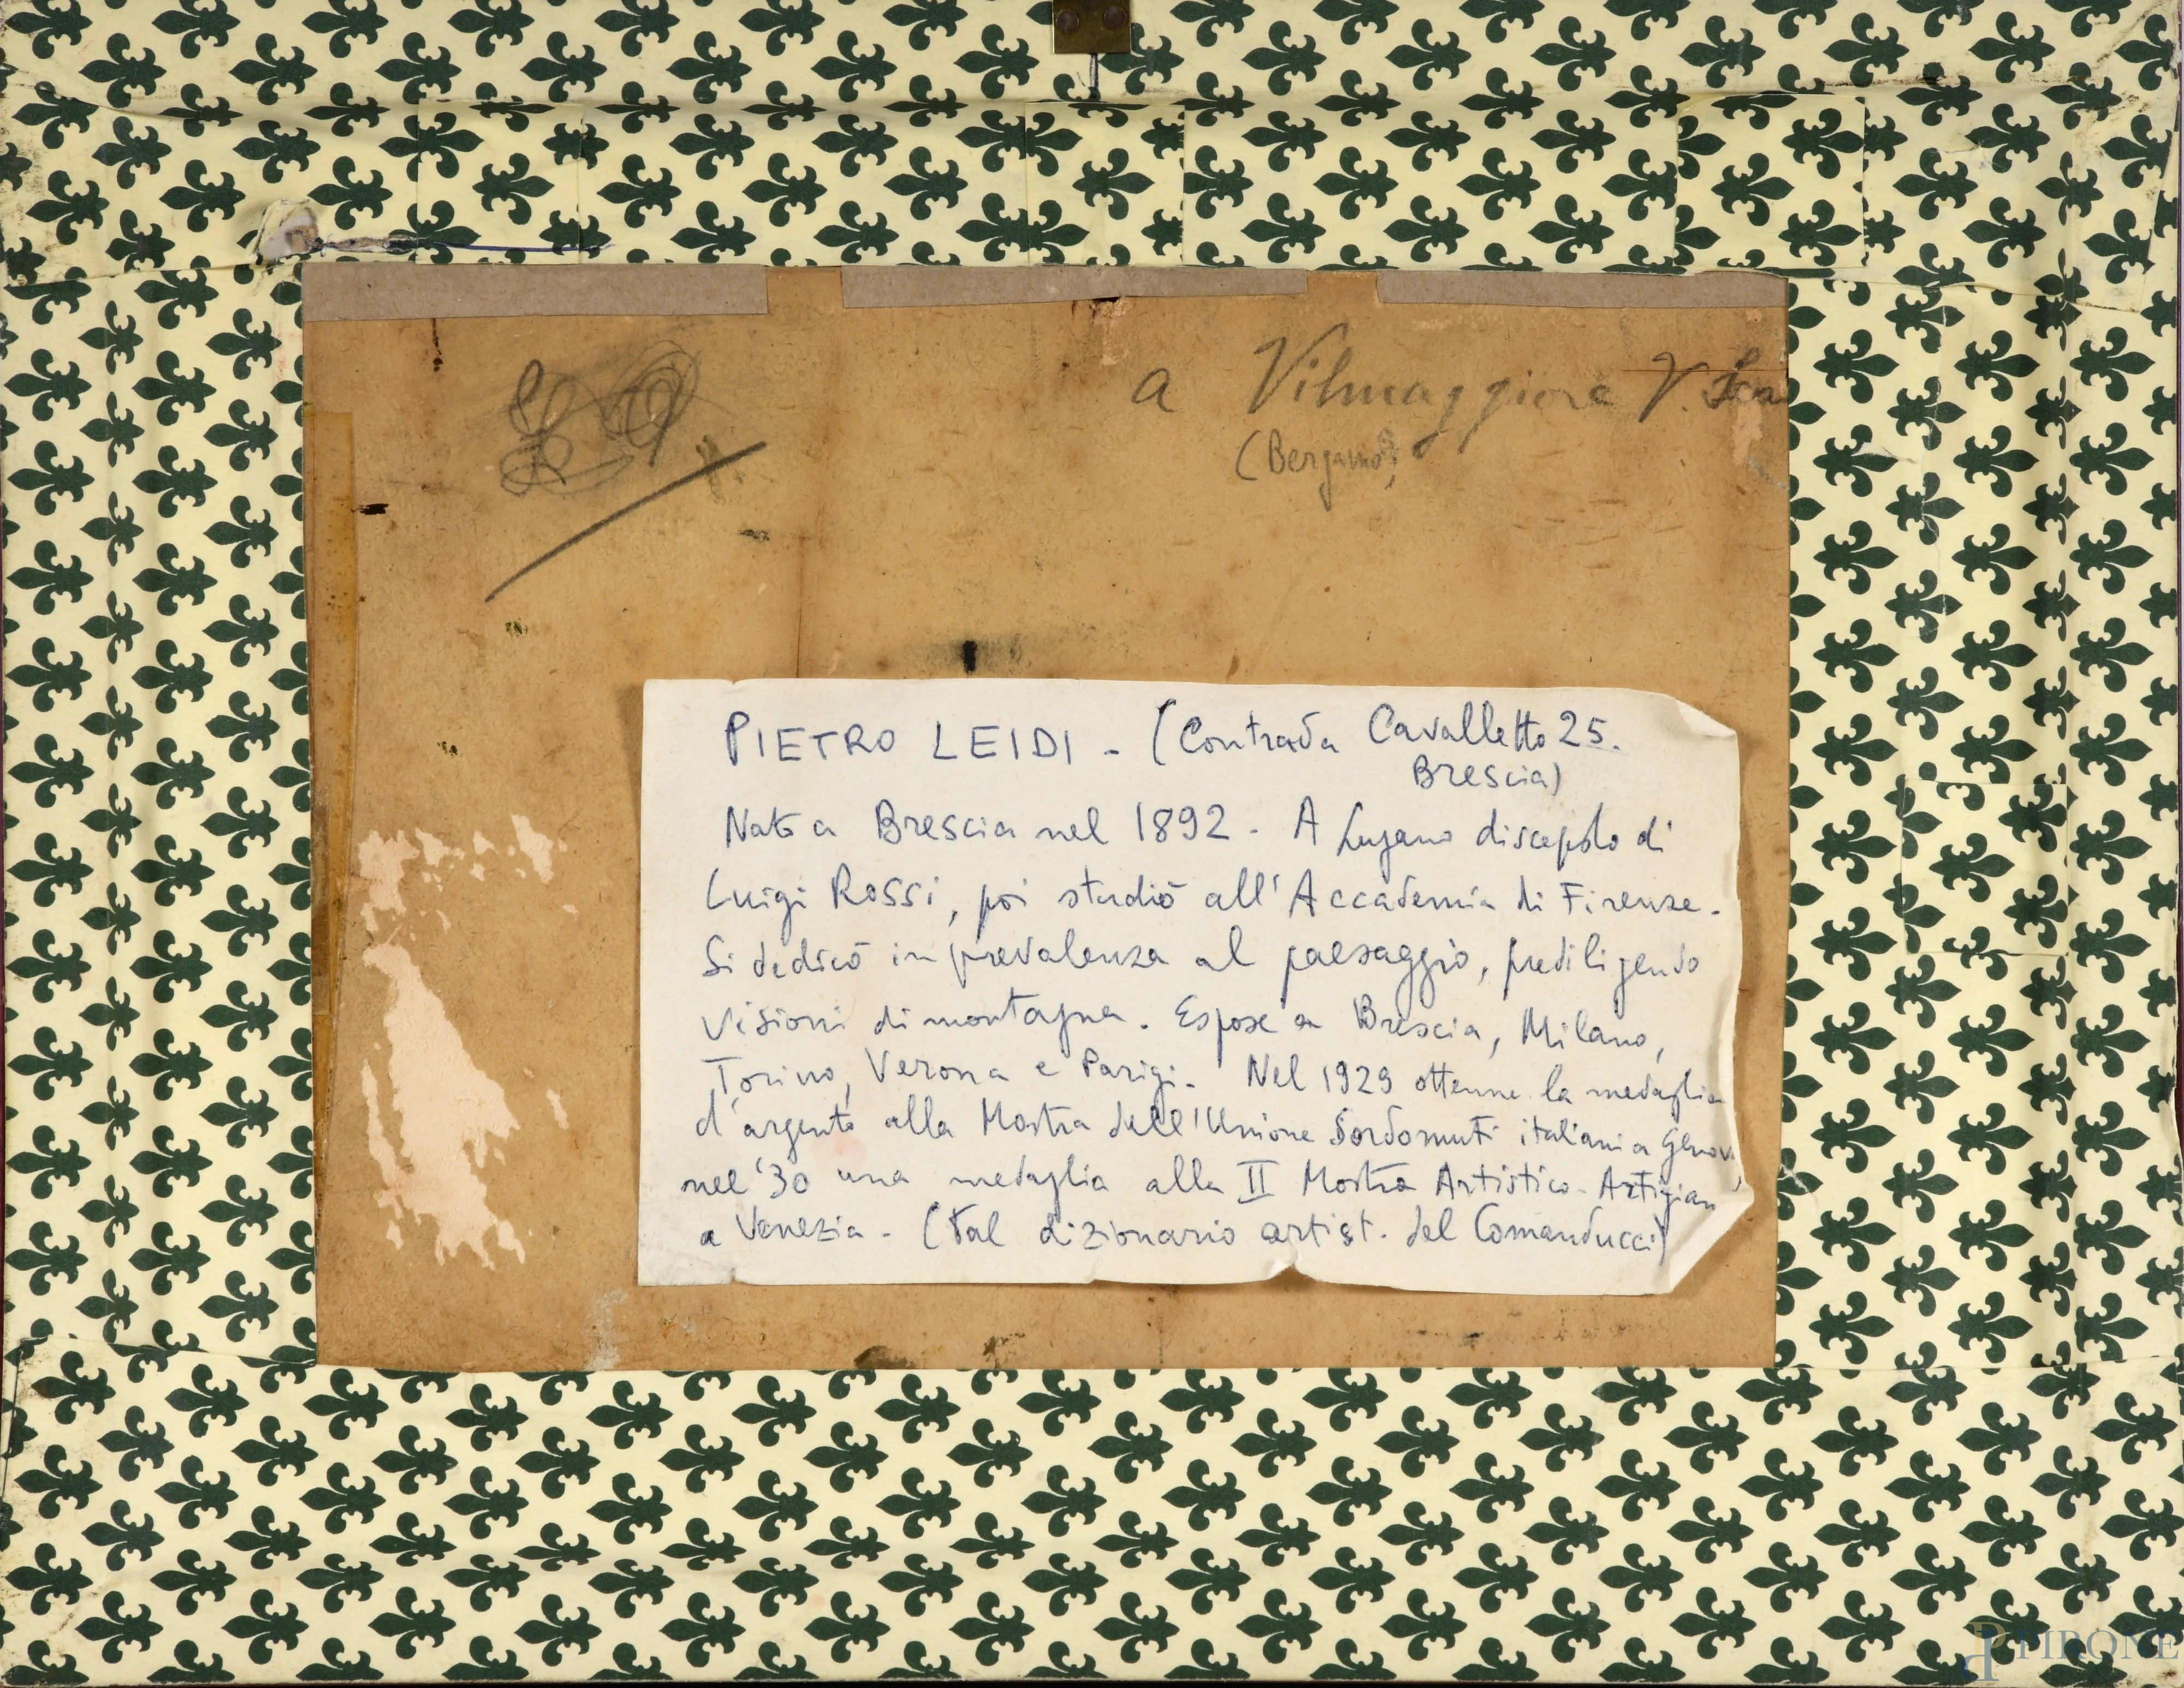 a Vilmaggiore V. Sca
(Bergamo)
PIETRO LEIDI - (Contrada Cavalletto 25.
Brescia)
Nato a Brescia nel 1892 - A Lugano discepolo di
Luigi Rossi, poi studiò all'Accademia di Firenze.
Si dedicò in prevalenza al paesaggio, prediligendo
visioni di montagna. Espose a Brescia, Milano,
Torino, Verona e Parigi. Nel 1929 ottenne la medaglia
d'argento alla Mostra dell'Unione Sordomuti italiani a Genova,
nel '30 una medaglia alla II Mostra Artistico-Artigian
a Venezia - (Dal dizionario artist. del Comanducci)
PIRONE